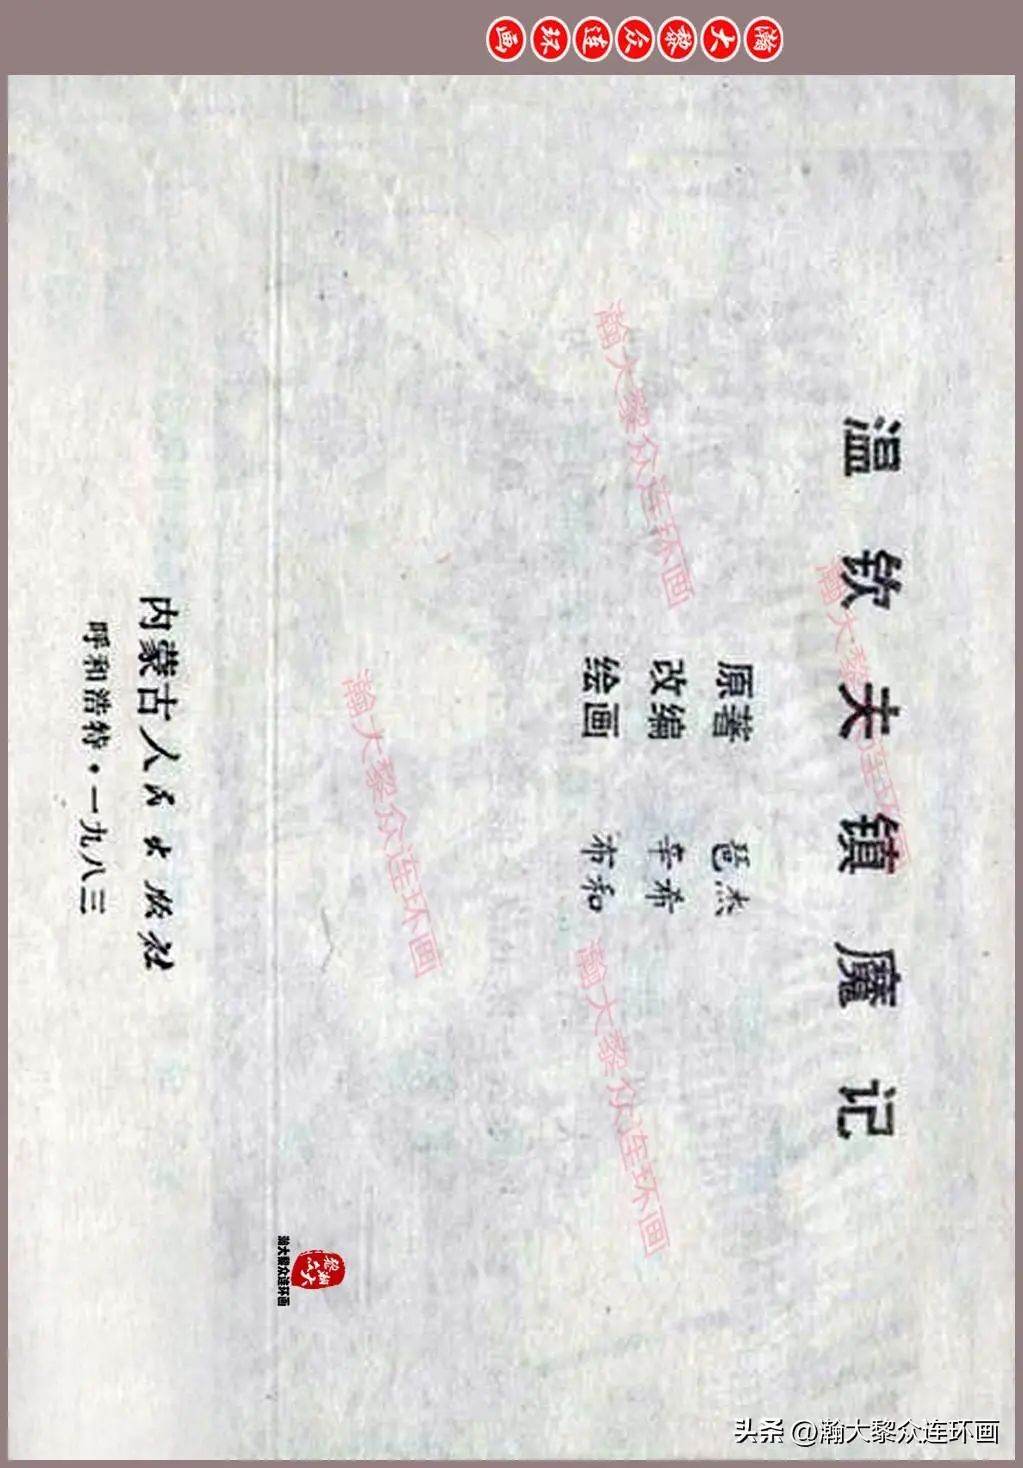 瀚大黎众连环画
温钦夫镇魔记
原著 琶杰
改编 辛希
绘画 布和
内蒙古人民出版社
呼和浩特·一九八三
瀚大黎众连环画
瀚大黎众连环画
瀚大黎众连环画
瀚大黎众连环画
瀚大黎众连环画
头条 @瀚大黎众连环画